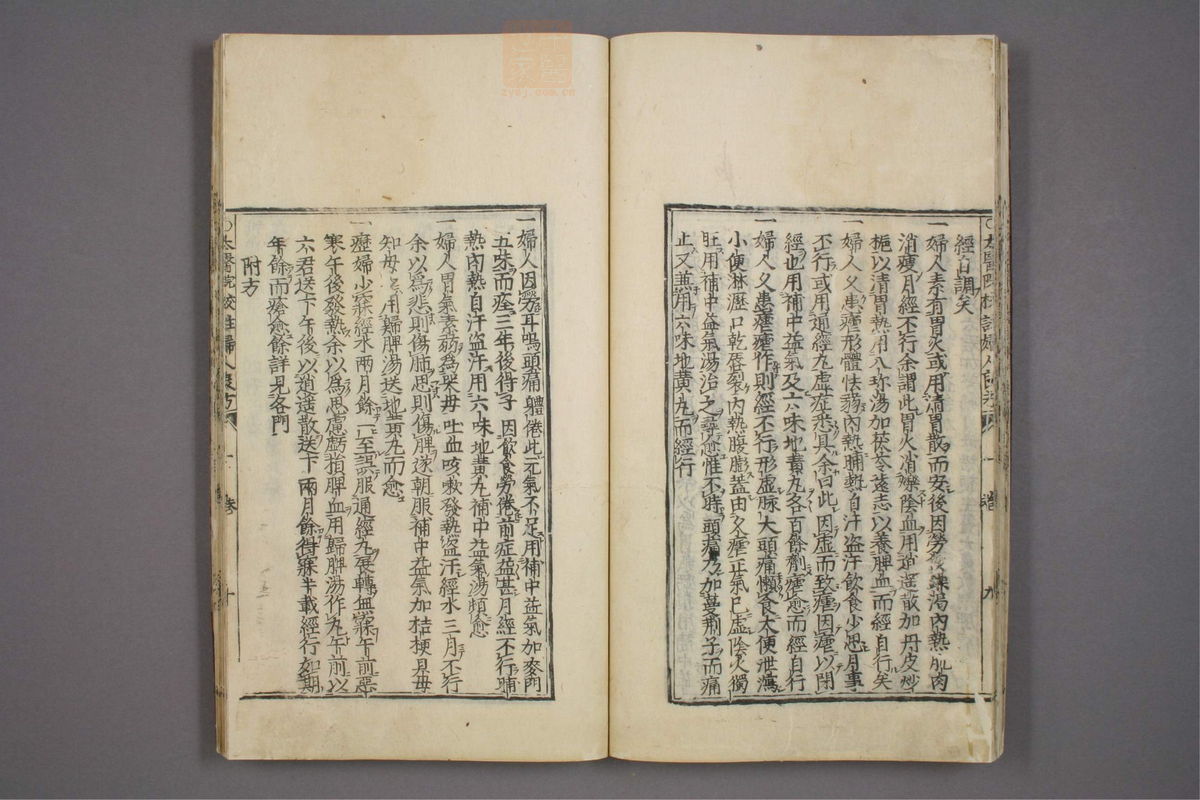 經自調矣
一婦人素有胃火或用清胃散而安後因勞役燥渴內熱肌肉
消瘦月經不行余謂此胃火消爍陰血用逍遥散加丹皮炒
梔以清胃熱用八珍湯加茯苓遠志以養脾血而經自行矣
一婦人久患瘧形體怯弱內熱晡熱自汗盗汗飲食少思月事
不行或用通經丸虛症悉具余曰此因虛而致瘧因瘧以閉
經也用補中益氣及六味地黄丸各百餘劑瘧愈而經自行
一婦人久患瘧瘧作則經不行形虛脉大頭痛懶食大便泄瀉
小便淋瀝口乾唇裂內熱腹膨蓋由久瘧正氣已虛陰火獨
旺用補中益氣湯治之諸症愈惟不時頭痛乃加蔓荆子而痛
止又兼用六味地黄丸而經行
太醫院校註婦人良方
一卷
九
一婦人因勞耳鳴頭痛軆倦此元氣不足用補中益氣加麥門
五味而痊三年後得子因飲食勞倦前症益甚月經不行晡
熱內熱自汗盗汗用六味地黄丸補中益氣湯頓愈
一婦人胃氣素弱爲哭母吐血咳嗽發熱盗汗經水三月不行
余以爲悲則傷肺思則傷脾遂朝服補中益氣加桔梗貝母
知母夕用歸脾湯送地黄丸而愈
一瘞婦少寐經水兩月餘一至誤服通經丸展轉無寐午前惡
寒午後發熱余以爲思慮虧損脾血用歸脾湯作丸午前以
六君送下午後以逍遥散送下兩月餘得寐半載經行如期
年餘而瘡愈餘詳見各門
附方
太醫院校註婦人良方
一卷
十
中醫
zysj.com.cn